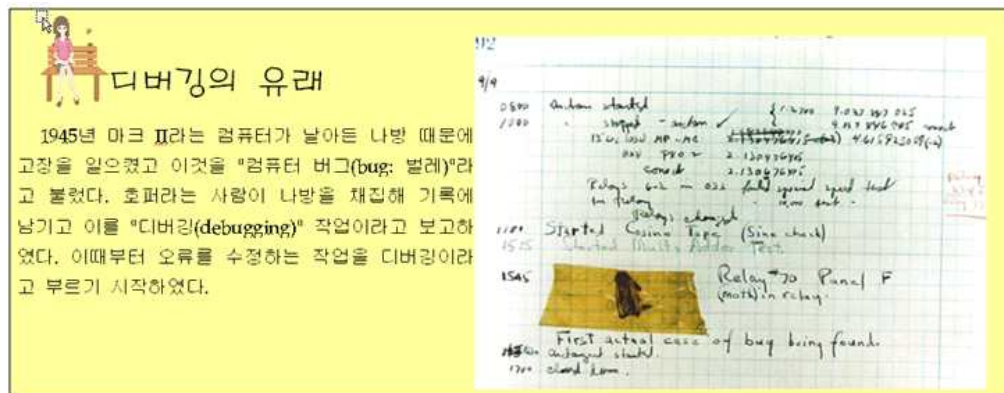 디버깅의 유래
1945년 마크 Ⅱ라는 컴퓨터가 날아든 나방 때문에
고장을 일으켰고 이것을 "컴퓨터 버그(bug: 벌레)"라
고 불렀다. 호퍼라는 사람이 나방을 채집해 기록에
남기고 이를 "디버깅(debugging)" 작업이라고 보고하
였다. 이때부터 오류를 수정하는 작업을 디버깅이라
고 부르기 시작하였다.
9/9
0800 antan started
1000 stopped - antan ✓
13" MP-MC
033 PRO 2 2.130476415
2.130676415
Relays 6-2 in 033 failed special speed test
in relay
Relays changed
1100 Started Cosine Tape (Sine check)
1525 Started Multi Adder Test.
1545 Relay #70 Panel F
(moth) in relay.
First actual case of bug being found.
antangent started.
1700 closed down.